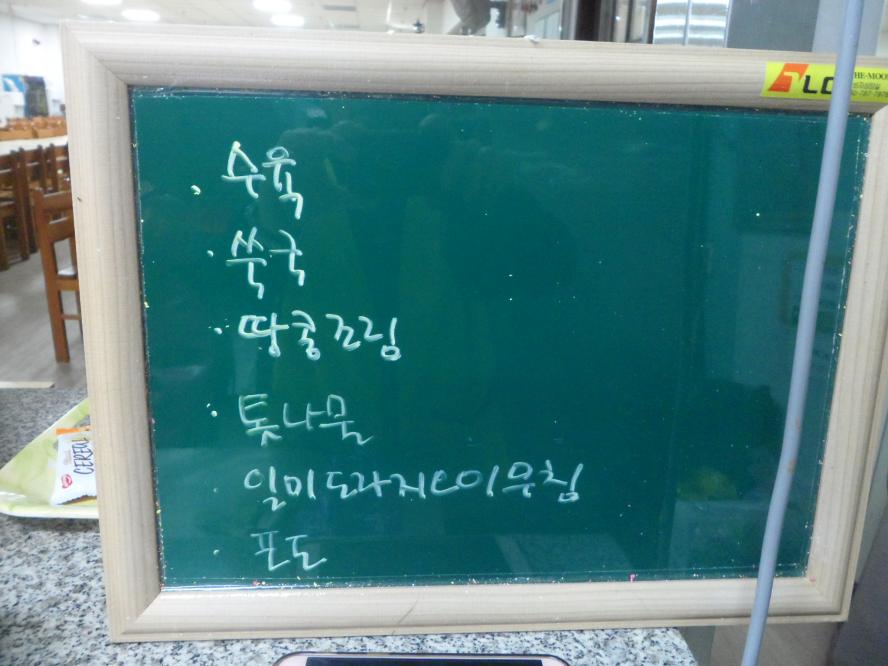 수육
쑥국
땅콩조림
톳나물
일미도라지오이무침
포도
CEREAL